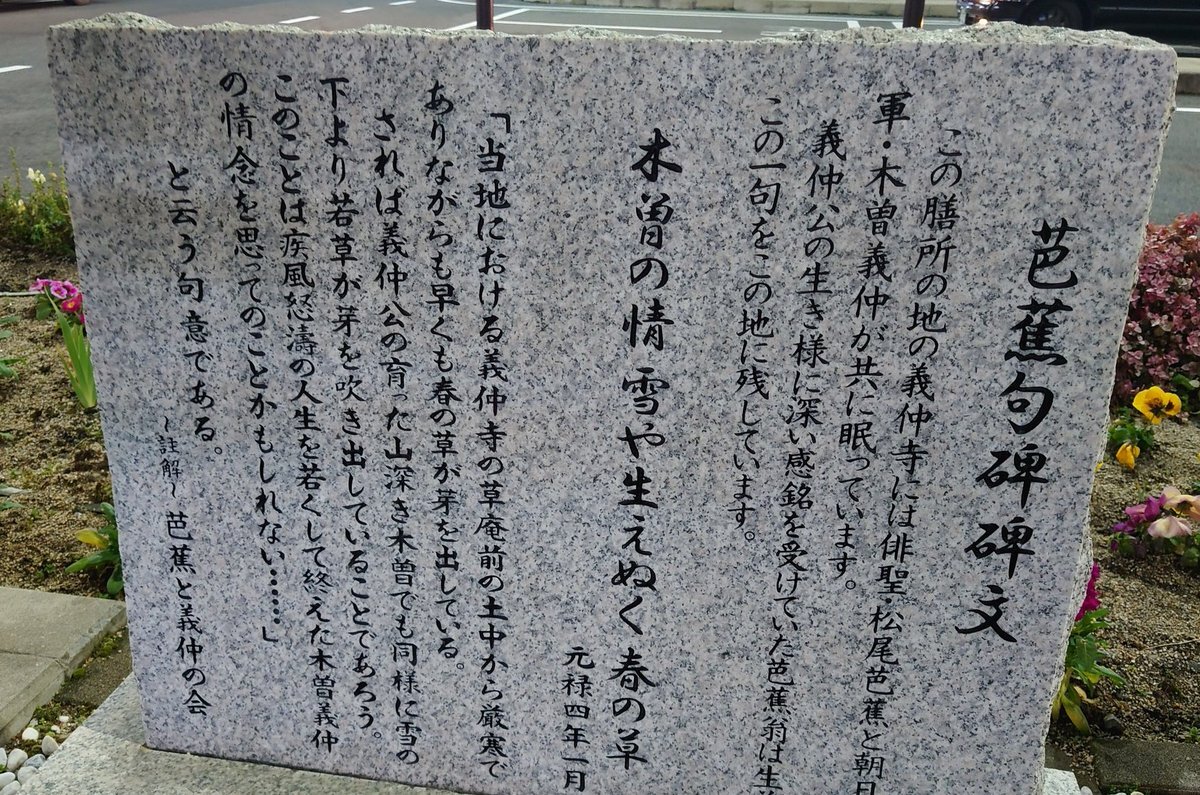 芭蕉句碑碑文
この膳所の地の義仲寺には俳聖・松尾芭蕉と朝日
軍・木曽義仲が共に眠っています。
義仲公の生き様に深い感銘を受けていた芭蕉翁は生
この一句をこの地に残しています。
木曽の情 雪や生えぬく 春の草
元禄四年一月
「当地における義仲寺の草庵前の土中から厳寒で
ありながらも早くも春の草が芽を出している。
されば義仲公の育った山深き木曽でも同様に雪の
下より若草が芽を吹き出していることてあろう。
このことは疾風怒濤の人生を若くして終えた木曽義仲
の情念を思ってのことかもしれない……」
と云う句意である。
~註解~ 芭蕉と義仲の会